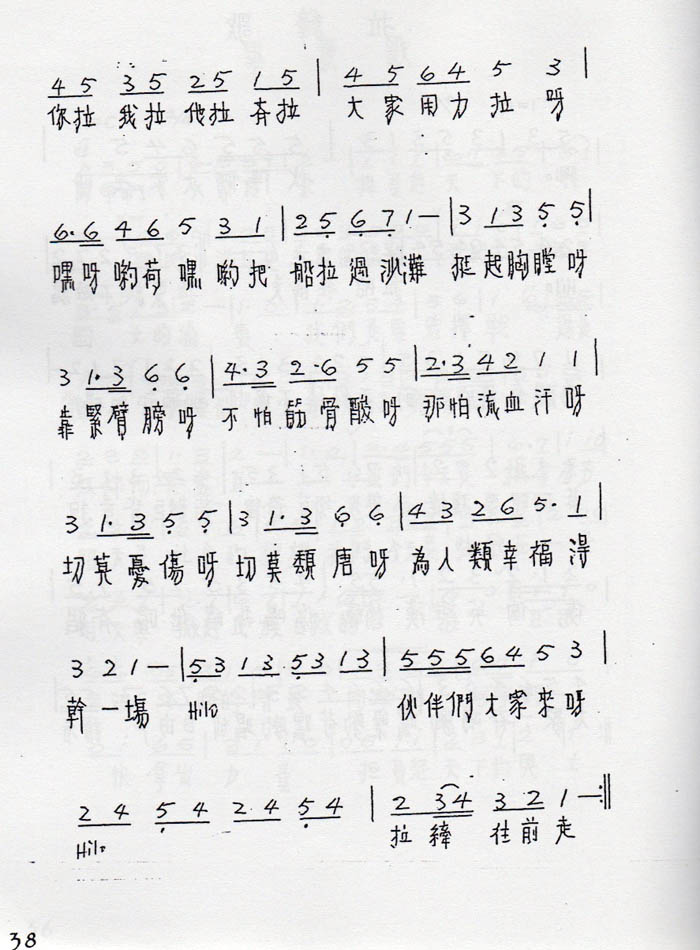 4 5 3 5 2 5 1 5 | 4 5 6 4 5 3 |
你拉 我拉 他拉 齐拉 大家用力拉呀
6·6 4 6 5 3 1 | 2 5 6 7 1 — | 3 1 3 5 5 |
嘿呀喲荷嘿喲把 船拉過沙灘 挺起胸膛呀
3 1·3 6 6 | 4·3 2·6 5 5 | 2·3 4 2 1 1 |
靠緊臂膀呀 不怕筋骨酸呀 那怕流血汗呀
3 1·3 5 5 | 3 1·3 6 6 | 4 3 2 6 5·1 |
切莫憂傷呀 切莫頹唐呀 為人類幸福得
3 2 1 — | 5 3 1 3 5 3 1 3 | 5 5 5 6 4 5 3 |
幹一場 Hilo 伙伴們大家來呀
2 4 5 4 2 4 5 4 | 2 3 4 3 2 1 —:||
Hilo 拉縴 往前走
38